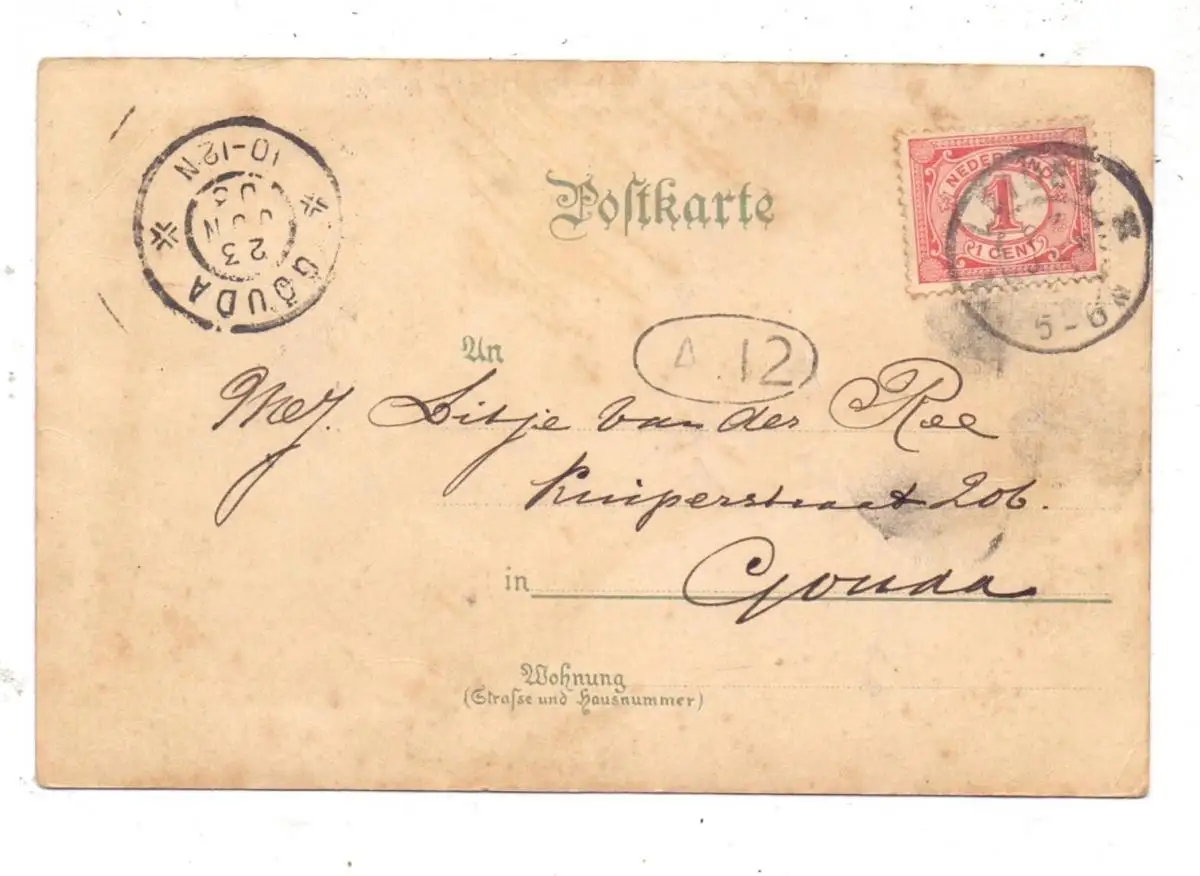 GOUDA
23
JUN
03
10-12N
Postkarte
NEDERLAND
1
1 CENT
5-6N
An
A 12
Mej. Litje van der Ree
Kuiperstraat 206.
in Gouda
Wohnung
(Strasse und Hausnummer)